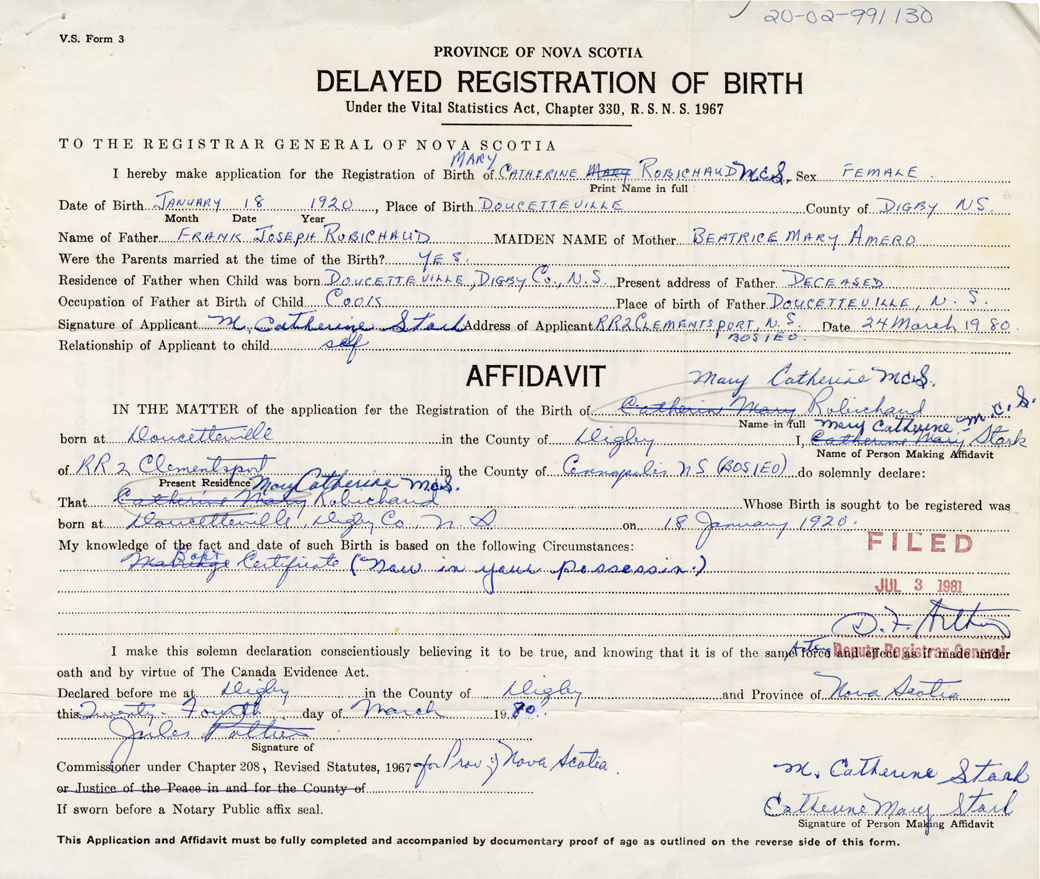 20-02-991130
V.S. Form 3
PROVINCE OF NOVA SCOTIA
DELAYED REGISTRATION OF BIRTH
Under the Vital Statistics Act, Chapter 330, R.S.N.S. 1967
TO THE REGISTRAR GENERAL OF NOVA SCOTIA
MARY
I hereby make application for the Registration of Birth of CATHERINE MARY ROBICHAUD McS. Sex FEMALE.
Print Name in full
Date of Birth JANUARY 18 1920, Place of Birth DOUCETTEVILLE County of DIGBY NS.
Month Date Year
Name of Father FRANK JOSEPH ROBICHAUD MAIDEN NAME of Mother BEATRICE MARY AMERO
Were the Parents married at the time of the Birth? YES.
Residence of Father when Child was born DOUCETTEVILLE, DIGBY CO., N.S. Present address of Father DECEASED
Occupation of Father at Birth of Child Place of birth of Father DOUCETTEVILLE, N.S.
Signature of Applicant M. Catherine Stark Address of Applicant RR2 CLEMENTSPORT, N.S. Date 24 March 1980.
BOS1E0.
Relationship of Applicant to child self
AFFIDAVIT
Mary Catherine McS.
IN THE MATTER of the application for the Registration of the Birth of Catherine Mary Robichaud
Name in full Mary Catherine - M.C.S.
born at Doucetteville in the County of Digby I, Catherine Mary Stark
Name of Person Making Affidavit
of RR2 Clementsport in the County of Annapolis NS (BOS1E0) do solemnly declare:
Present Residence Mary Catherine McS.
That Catherine Mary Robichaud Whose Birth is sought to be registered was
born at Doucetteville, Digby Co., N.S. on 18 January 1920.
My knowledge of the fact and date of such Birth is based on the following Circumstances:
FILED
Certificate (Now in your possession.)
JUL 3 1981
I make this solemn declaration conscientiously believing it to be true, and knowing that it is of the same force and effect as if made under
Deputy Registrar General
oath and by virtue of The Canada Evidence Act.
Declared before me at Digby in the County of Digby and Province of Nova Scotia
this Twenty-Fourth day of March 1980.
Signature of
Commissioner under Chapter 208, Revised Statutes, 1967 for Prov. of Nova Scotia.
or Justice of the Peace in and for the County of
M. Catherine Stark
If sworn before a Notary Public affix seal.
Catherine Mary Stark
Signature of Person Making Affidavit
This Application and Affidavit must be fully completed and accompanied by documentary proof of age as outlined on the reverse side of this form.